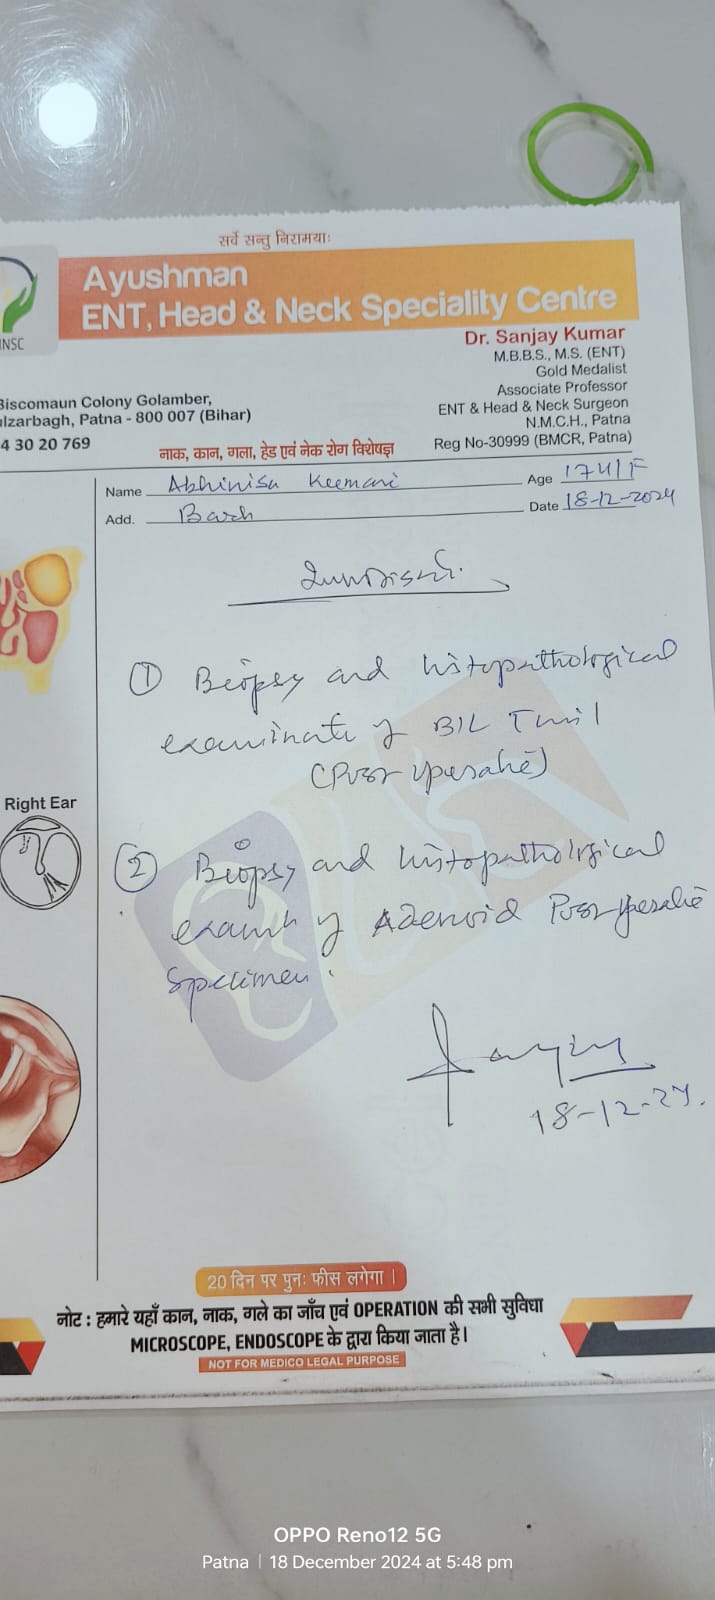 सर्वे सन्तु निरामयाः
Ayushman
ENT, Head & Neck Speciality Centre
NSC
Dr. Sanjay Kumar
M.B.B.S., M.S. (ENT)
Gold Medalist
Associate Professor
ENT & Head & Neck Surgeon
N.M.C.H., Patna
Reg No-30999 (BMCR, Patna)
Biscomaun Colony Golamber,
lzarbagh, Patna - 800 007 (Bihar)
4 30 20 769
नाक, कान, गला, हेड एवं नेक रोग विशेषज्ञ
Name Kumari Age 17Y/F
Add. Barh Date 18-12-2024
① Biopsy and histopathological
of B/L Tonsil
(Post operative)
Right Ear
② Biopsy and histopathological
of Adenoid Post operative
Specimen.
18-12-24.
20 दिन पर पुनः फीस लगेगा।
नोट : हमारे यहाँ कान, नाक, गले का जाँच एवं OPERATION की सभी सुविधा
MICROSCOPE, ENDOSCOPE के द्वारा किया जाता है।
NOT FOR MEDICO LEGAL PURPOSE
OPPO Reno12 5G
Patna | 18 December 2024 at 5:48 pm